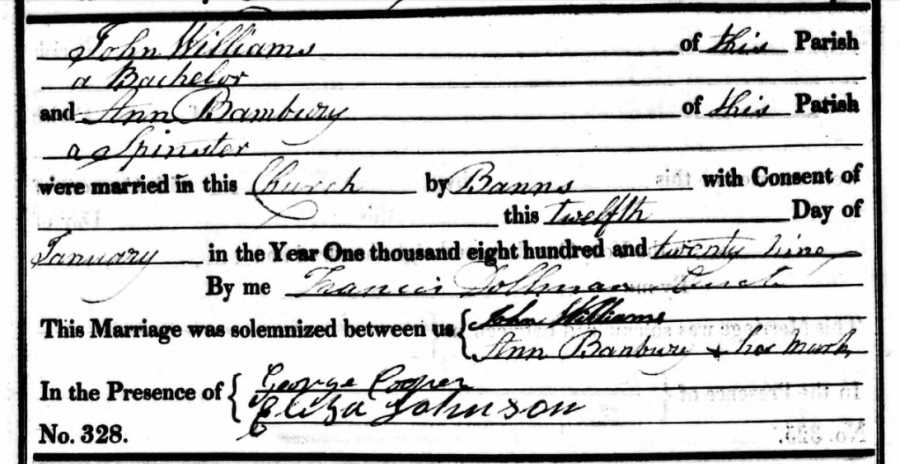 John Williams of this Parish
a Bachelor
and Ann Bambury of this Parish
a Spinster
were married in this Church by Banns with Consent of
this twelfth Day of
January in the Year One thousand eight hundred and twenty nine
By me Francis Dollman Curate
This Marriage was solemnized between us { John Williams
Ann Banbury + her mark
In the Presence of { George Cooper
Eliza Johnson
No. 328.